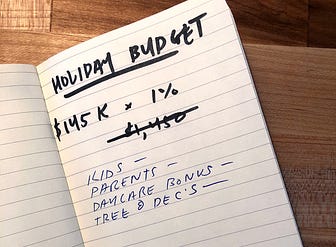 HOLIDAY BUDGET
$145K x 1%
$1,450
KIDS -
PARENTS -
DAYCARE BONUS -
TREE & DEC'S -